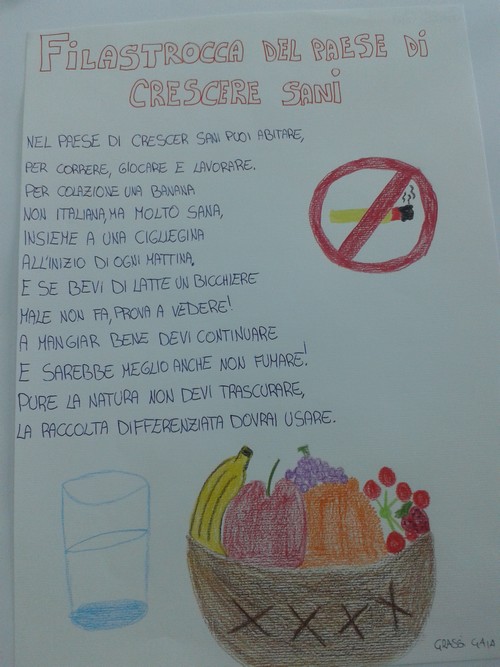 FILASTROCCA DEL PAESE DI
CRESCERE SANI
NEL PAESE DI CRESCER SANI PUOI ABITARE,
PER CORRERE, GIOCARE E LAVORARE.
PER COLAZIONE UNA BANANA
NON ITALIANA, MA MOLTO SANA,
INSIEME A UNA CIGLIEGINA
ALL'INIZIO DI OGNI MATTINA.
E SE BEVI DI LATTE UN BICCHIERE
MALE NON FA, PROVA A VEDERE!
A MANGIAR BENE DEVI CONTINUARE
E SAREBBE MEGLIO ANCHE NON FUMARE!
PURE LA NATURA NON DEVI TRASCURARE,
LA RACCOLTA DIFFERENZIATA DOVRAI USARE.
GRASSI GAIA